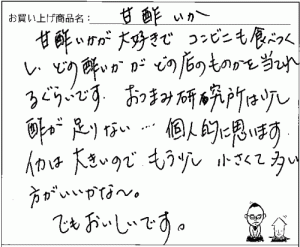 お買い上げ商品名: 甘酢いか
甘酢いかが大好きで コンビニも食べつく
し、どの酢いかがどの店のものかを当てれ
るぐらいです。 おつまみ研究所は少し
酢が足りない… 個人的に思います。
イカは大きいので もう少し 小さくて多い
方がいいかな〜。
でもおいしいです。